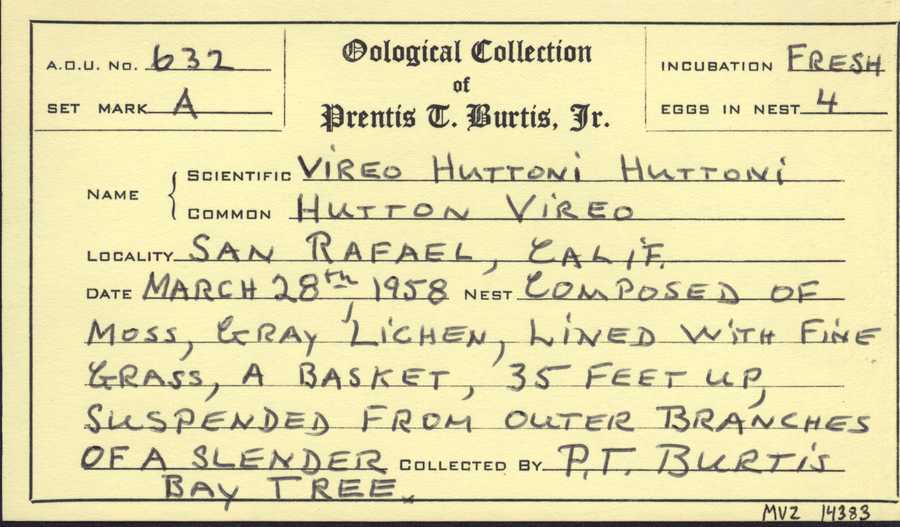 A.O.U. No. 632
SET MARK A
Oological Collection
of
Prentis T. Burtis, Jr.
INCUBATION FRESH
EGGS IN NEST 4
NAME
SCIENTIFIC VIREO HUTTONI HUTTONI
COMMON HUTTON VIREO
LOCALITY SAN RAFAEL, CALIF.
DATE MARCH 28th, 1958 NEST COMPOSED OF
MOSS, GRAY LICHEN, LINED WITH FINE
GRASS, A BASKET, 35 FEET UP,
SUSPENDED FROM OUTER BRANCHES
OF A SLENDER COLLECTED BY P.T. BURTIS
BAY TREE.
MVZ 14383